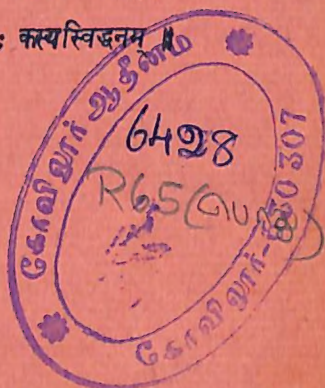 : कस्यस्विद्धनम् ॥
கோவிலூர் ஆதீனம்
6428
R65(
கோவிலூர்-630 307